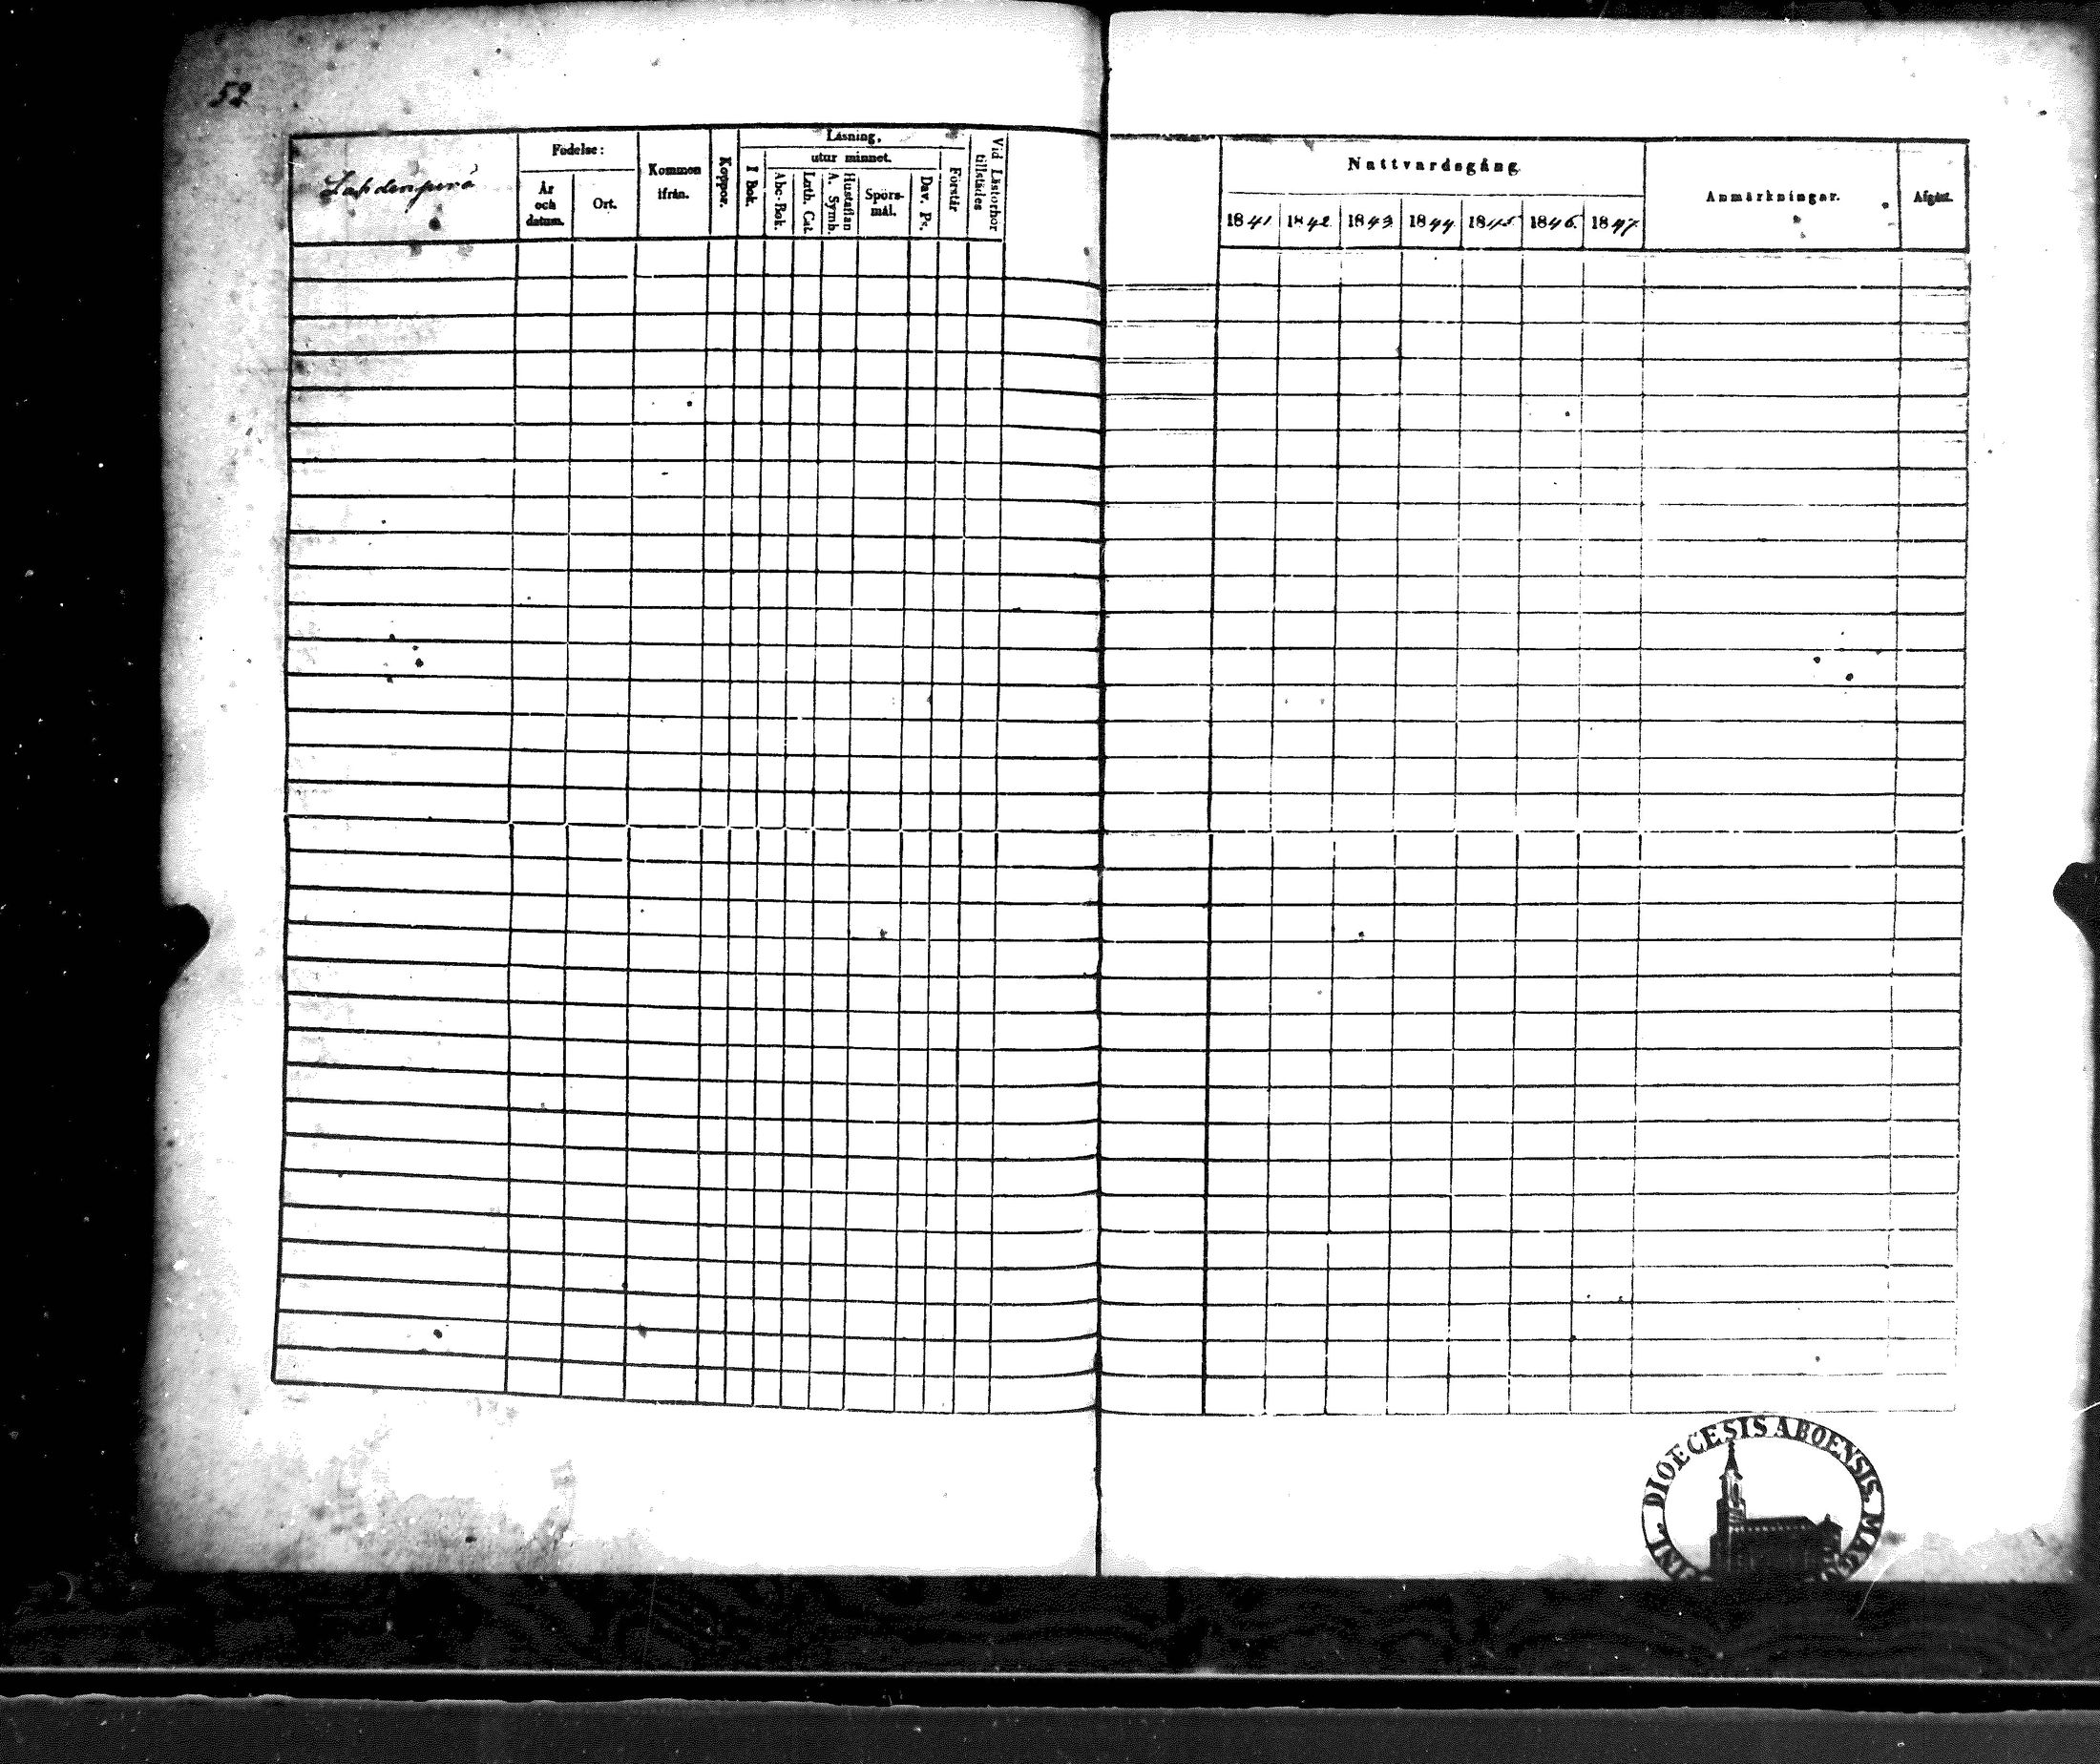 52
Lahdenperä
Födelse:
År
och
datum.
Ort.
Kommen
ifrån.
Koppor.
Läsning,
I Bok.
utur minnet.
Abc-Bok.
Luth. Cat.
Hustaflan
A. Symb.
Spörs-
mål.
Dav. Ps.
Förstår
Vid Läsförhör
tillstädes
Nattvardsgång
1841. 1842 1843. 1844. 1845. 1846. 1847.
Anmärkningar.
Afgått.
DIOECESIS ABOENSIS.